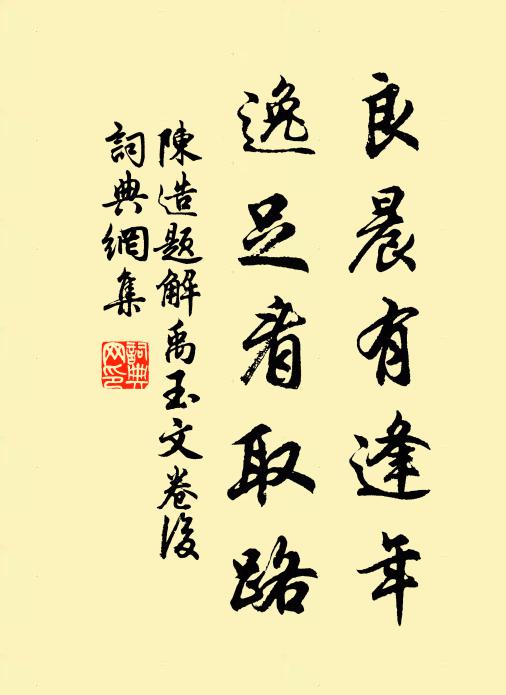 良晨有逢年
逸足看取路
陳造題解禹玉文卷後
詞典網集
詞典網印